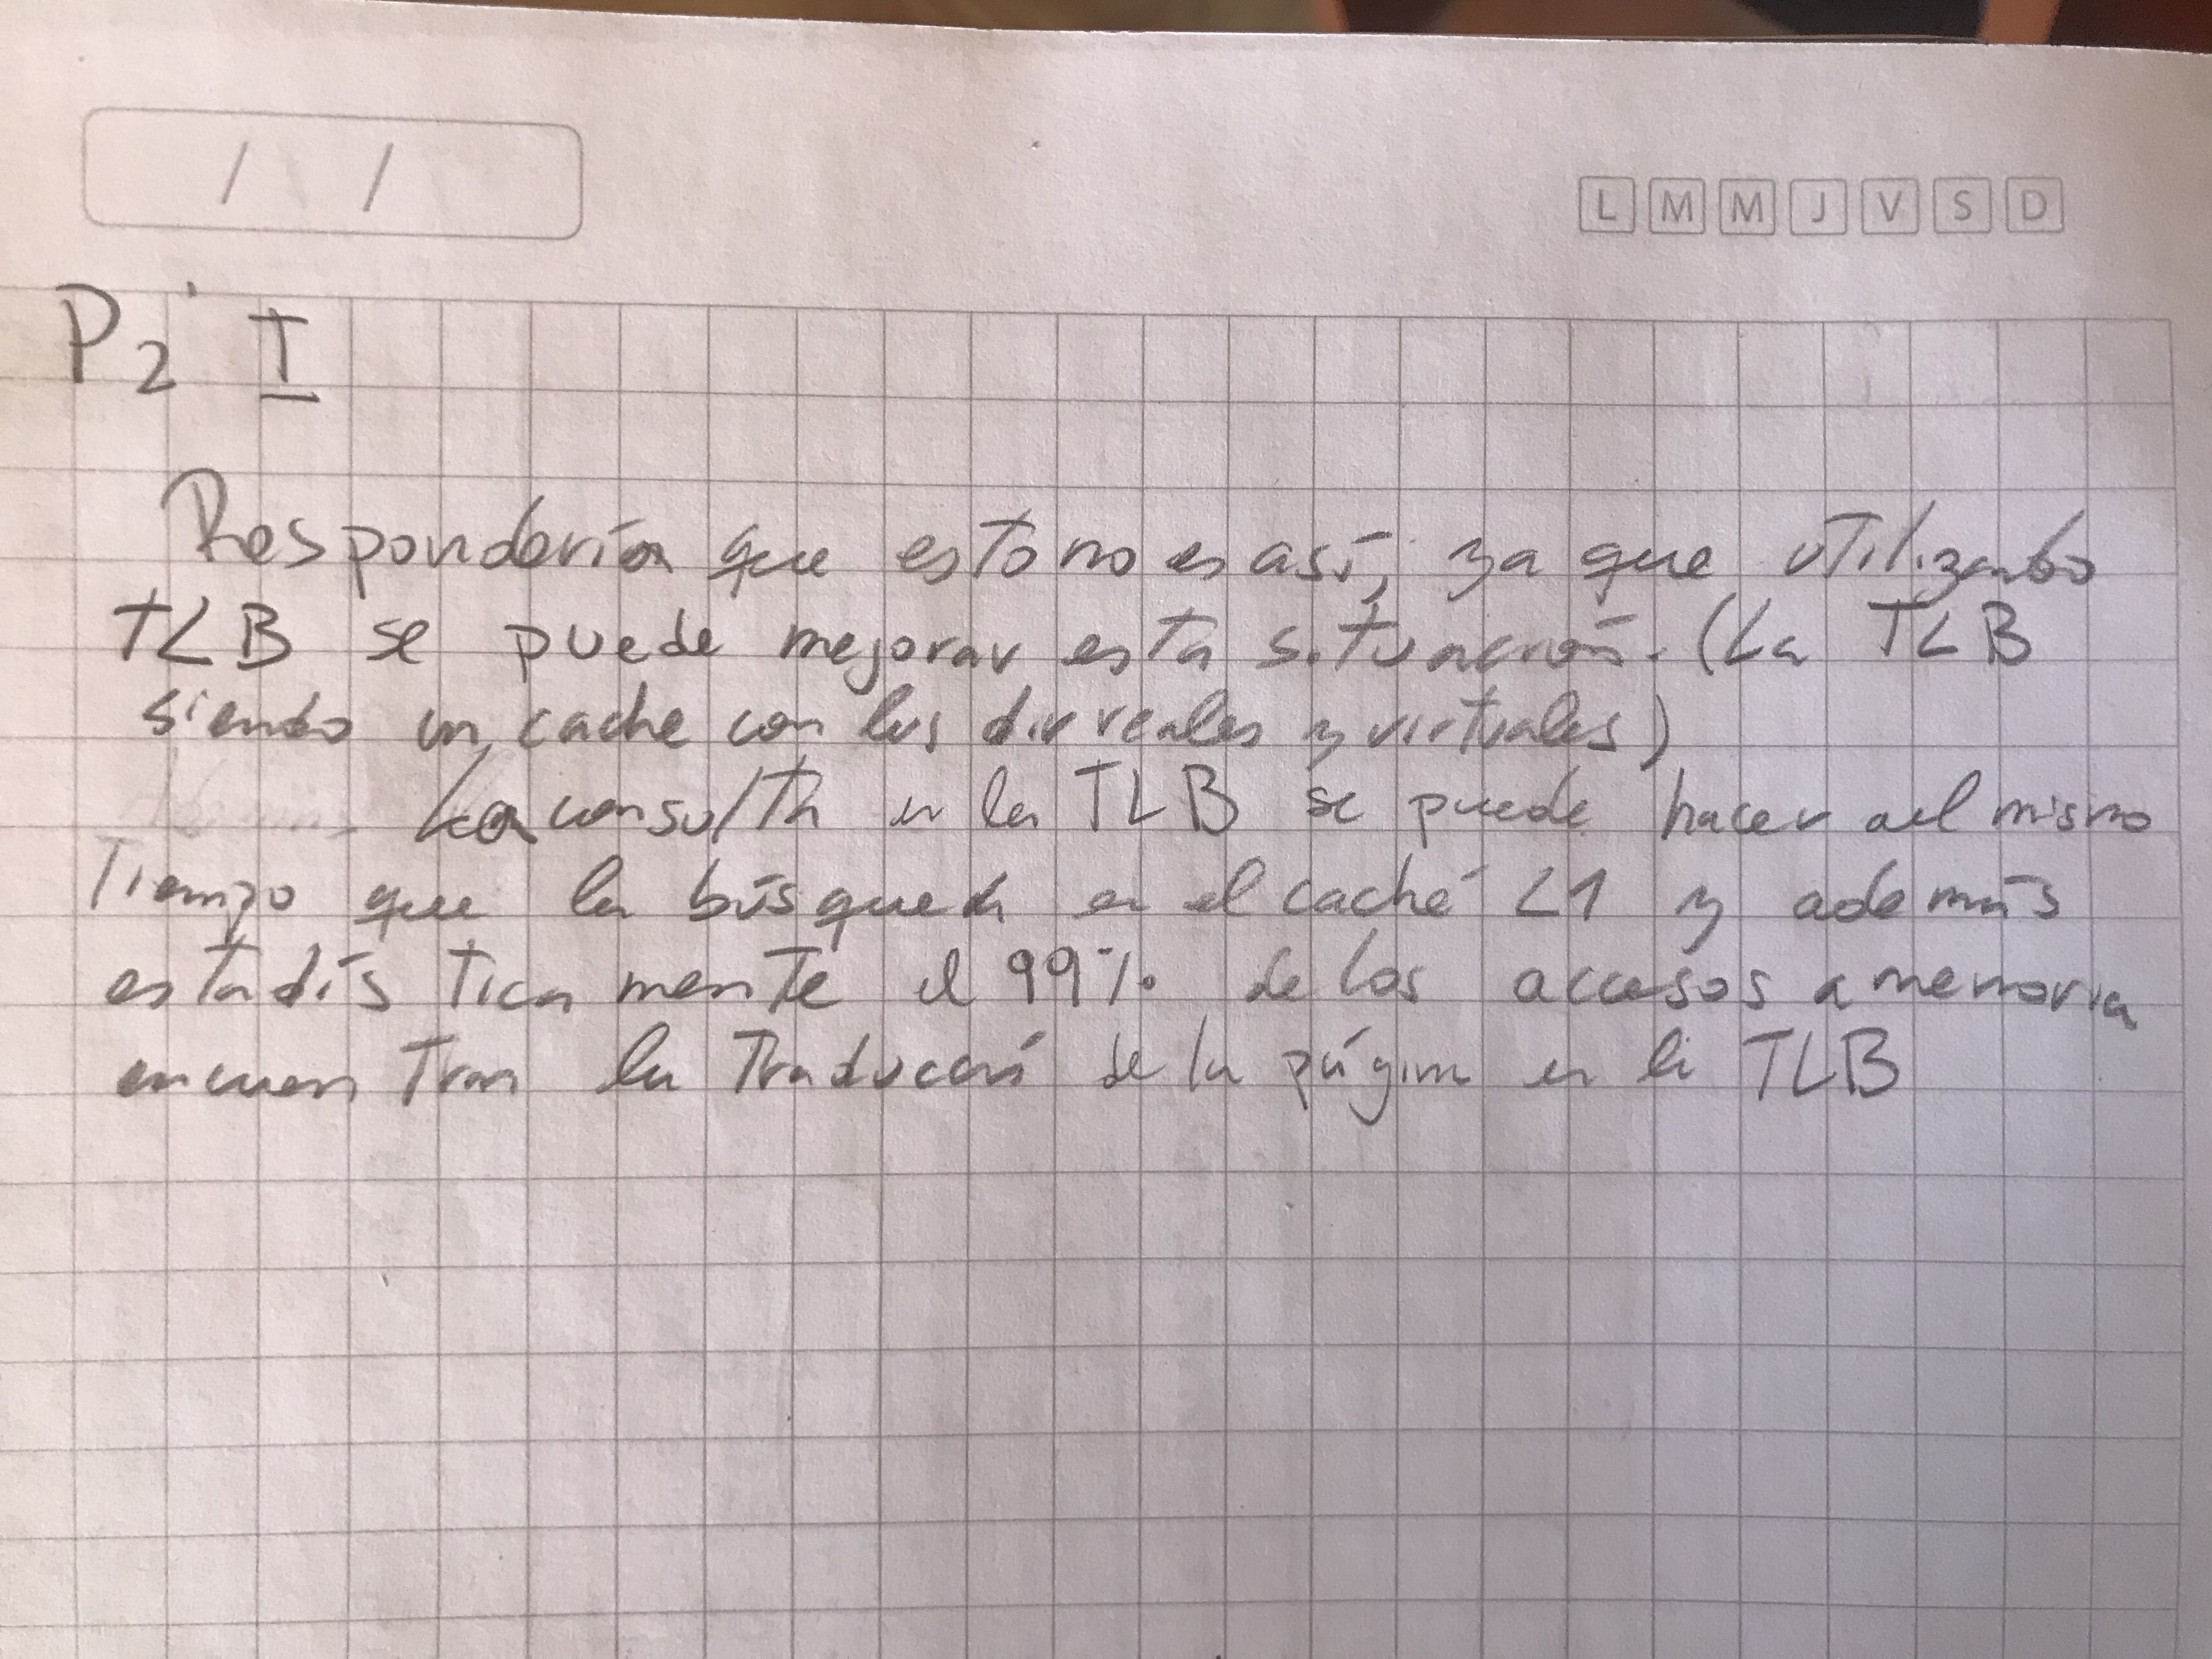 / /
L M M J V S D
P2 I
Respondería que esto no es así, ya que utilizando
TLB se puede mejorar esta situación. (La TLB
siendo un cache con las dir reales y virtuales)
La consulta en la TLB se puede hacer al mismo
Tiempo que la búsqueda en el caché L1 y además
estadísticamente el 99% de los accesos a memoria
encuentran la traducción de la página en la TLB